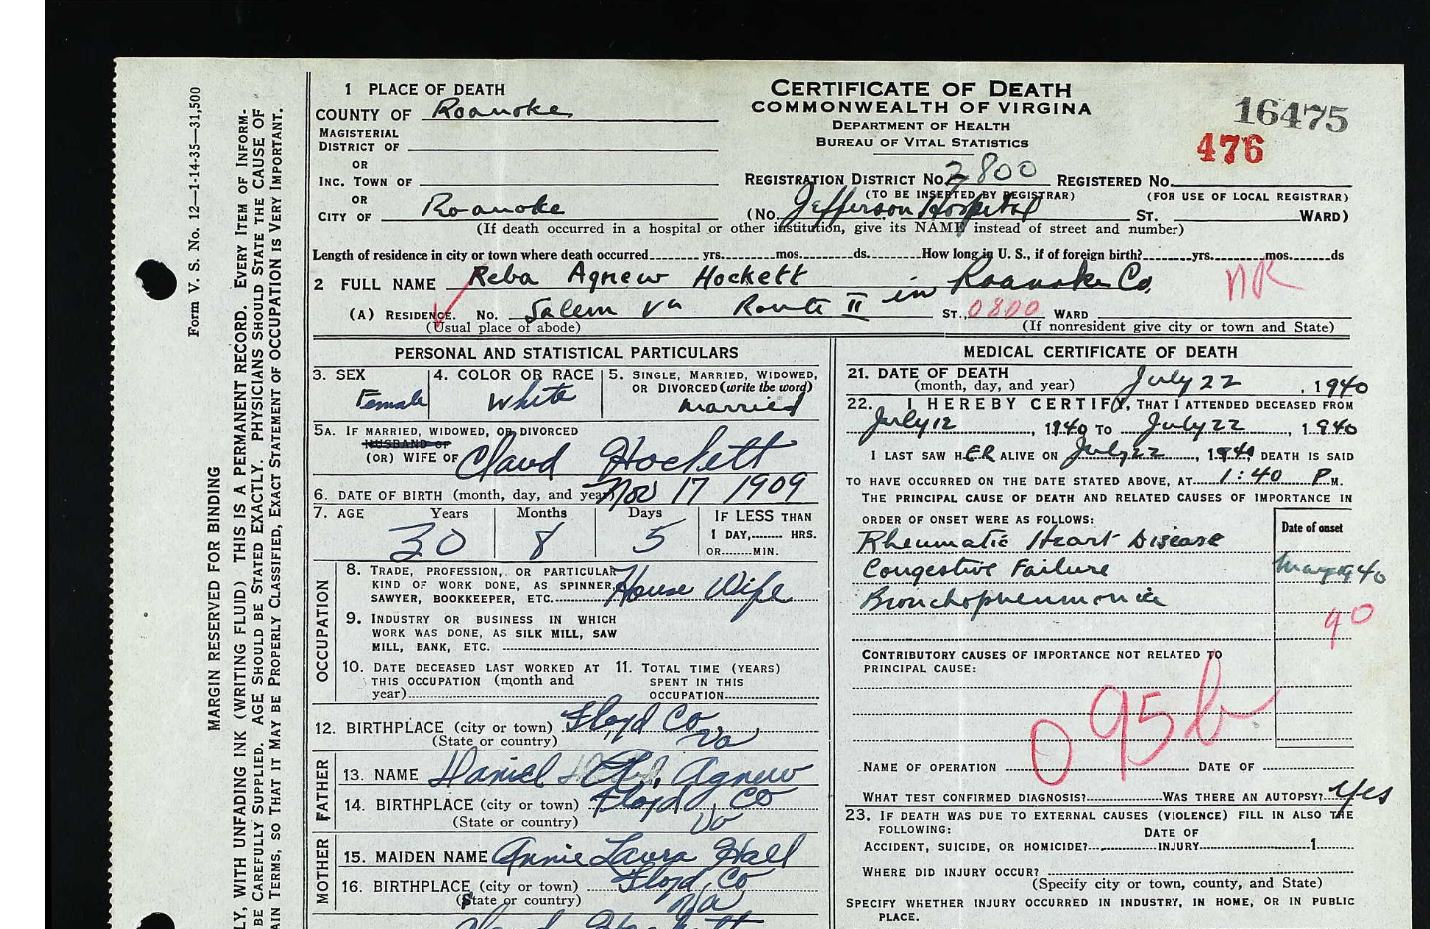 1 PLACE OF DEATH
COUNTY OF Roanoke
MAGISTERIAL
DISTRICT OF
OR
INC. TOWN OF
OR
CITY OF Roanoke
CERTIFICATE OF DEATH
COMMONWEALTH OF VIRGINA
DEPARTMENT OF HEALTH
BUREAU OF VITAL STATISTICS
16475
476
REGISTRATION DISTRICT NO. 2800 REGISTERED NO.
(TO BE INSERTED BY REGISTRAR) (FOR USE OF LOCAL REGISTRAR)
(No. Jefferson Hospital ST. WARD)
(If death occurred in a hospital or other institution, give its NAME instead of street and number)
Length of residence in city or town where death occurred yrs. mos. ds. How long in U. S., if of foreign birth? yrs. mos. ds
2 FULL NAME Reba Agnew Hockett in Roanoke Co. NR
(A) RESIDENCE. NO. Salem Va Route II ST., 0800 WARD
(Usual place of abode) (If nonresident give city or town and State)
PERSONAL AND STATISTICAL PARTICULARS
3. SEX 4. COLOR OR RACE 5. SINGLE, MARRIED, WIDOWED,
OR DIVORCED (write the word)
Female White Married
5A. IF MARRIED, WIDOWED, OR DIVORCED
HUSBAND OF
(OR) WIFE OF Claud Hockett
6. DATE OF BIRTH (month, day, and year) Nov 17 1909
7. AGE Years Months Days IF LESS THAN
1 DAY, HRS.
OR MIN.
30 8 5
OCCUPATION
8. TRADE, PROFESSION, OR PARTICULAR
KIND OF WORK DONE, AS SPINNER,
SAWYER, BOOKKEEPER, ETC. House Wife
9. INDUSTRY OR BUSINESS IN WHICH
WORK WAS DONE, AS SILK MILL, SAW
MILL, BANK, ETC.
10. DATE DECEASED LAST WORKED AT 11. TOTAL TIME (YEARS)
THIS OCCUPATION (month and SPENT IN THIS
year) OCCUPATION
12. BIRTHPLACE (city or town) Floyd Co
(State or country) Va
FATHER
13. NAME Daniel Agnew
14. BIRTHPLACE (city or town) Floyd Co
(State or country) Va
MOTHER
15. MAIDEN NAME Annie Laura Hall
16. BIRTHPLACE (city or town) Floyd Co
(State or country) Va
Claud Hockett
MEDICAL CERTIFICATE OF DEATH
21. DATE OF DEATH
(month, day, and year) July 22, 1940
22. I HEREBY CERTIFY, THAT I ATTENDED DECEASED FROM
July 12, 1940 TO July 22, 1940
I LAST SAW HER ALIVE ON July 22, 1940 DEATH IS SAID
TO HAVE OCCURRED ON THE DATE STATED ABOVE, AT 1:40 P.M.
THE PRINCIPAL CAUSE OF DEATH AND RELATED CAUSES OF IMPORTANCE IN
ORDER OF ONSET WERE AS FOLLOWS: Date of onset
Rheumatic Heart Disease
Congestive Failure May 1940
Bronchopneumonia
90
CONTRIBUTORY CAUSES OF IMPORTANCE NOT RELATED TO
PRINCIPAL CAUSE:
095b
NAME OF OPERATION DATE OF
WHAT TEST CONFIRMED DIAGNOSIS? WAS THERE AN AUTOPSY? Yes
23. IF DEATH WAS DUE TO EXTERNAL CAUSES (VIOLENCE) FILL IN ALSO THE
FOLLOWING: DATE OF
ACCIDENT, SUICIDE, OR HOMICIDE? INJURY 1
WHERE DID INJURY OCCUR?
(Specify city or town, county, and State)
SPECIFY WHETHER INJURY OCCURRED IN INDUSTRY, IN HOME, OR IN PUBLIC
PLACE.
Form V. S. No. 12—1-14-35—31,500
MARGIN RESERVED FOR BINDING
LY, WITH UNFADING INK (WRITING FLUID) THIS IS A PERMANENT RECORD. EVERY ITEM OF INFORM-
BE CAREFULLY SUPPLIED. AGE SHOULD BE STATED EXACTLY. PHYSICIANS SHOULD STATE THE CAUSE OF
AIN TERMS, SO THAT IT MAY BE PROPERLY CLASSIFIED. EXACT STATEMENT OF OCCUPATION IS VERY IMPORTANT.